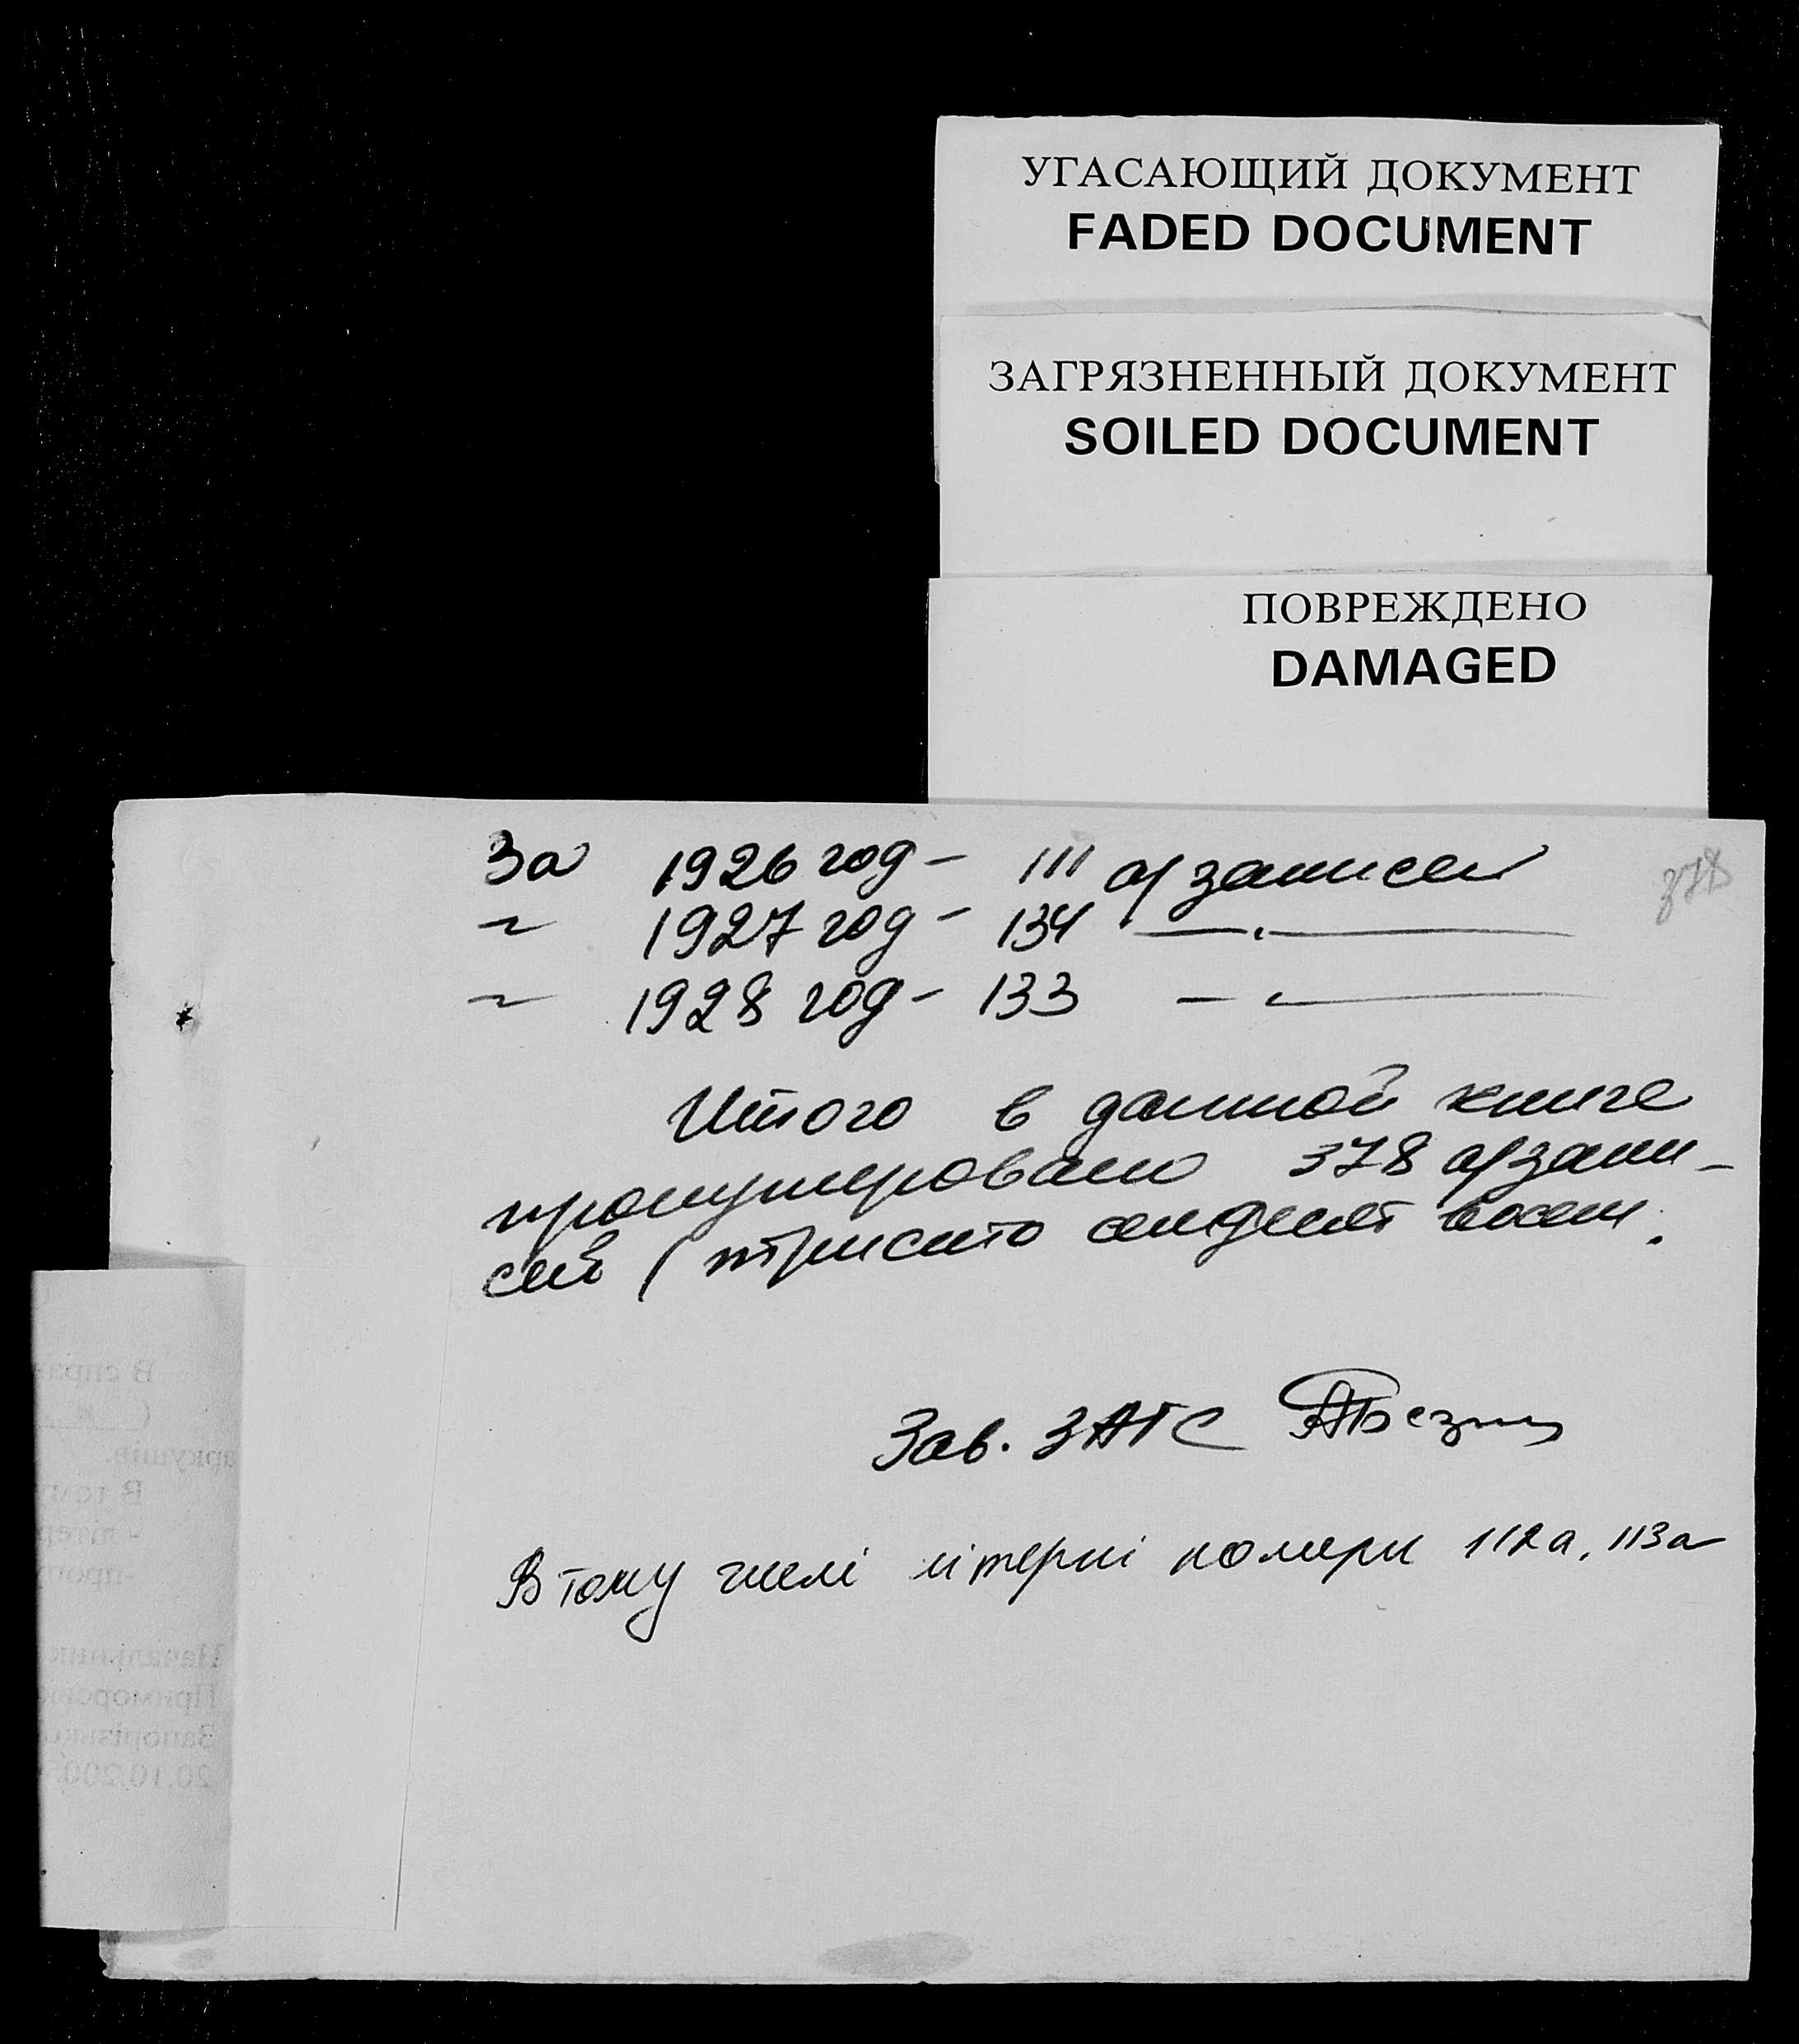 УГАСАЮЩИЙ ДОКУМЕНТ
FADED DOCUMENT
ЗАГРЯЗНЕННЫЙ ДОКУМЕНТ
SOILED DOCUMENT
ПОВРЕЖДЕНО
DAMAGED
378
За 1926 год - 111 а/записей
" 1927 год - 134 — " —
" 1928 год - 133 — " —
Итого в данной книге
пронумеровано 378 а/запи-
сей (триста семдесят восем.
Зав. ЗАГС
В тому числі літерні номери 112а, 113а
В спра
аркушів.
В тому
- літер
Начальник
Приморсько
Запорізько
20.10.200